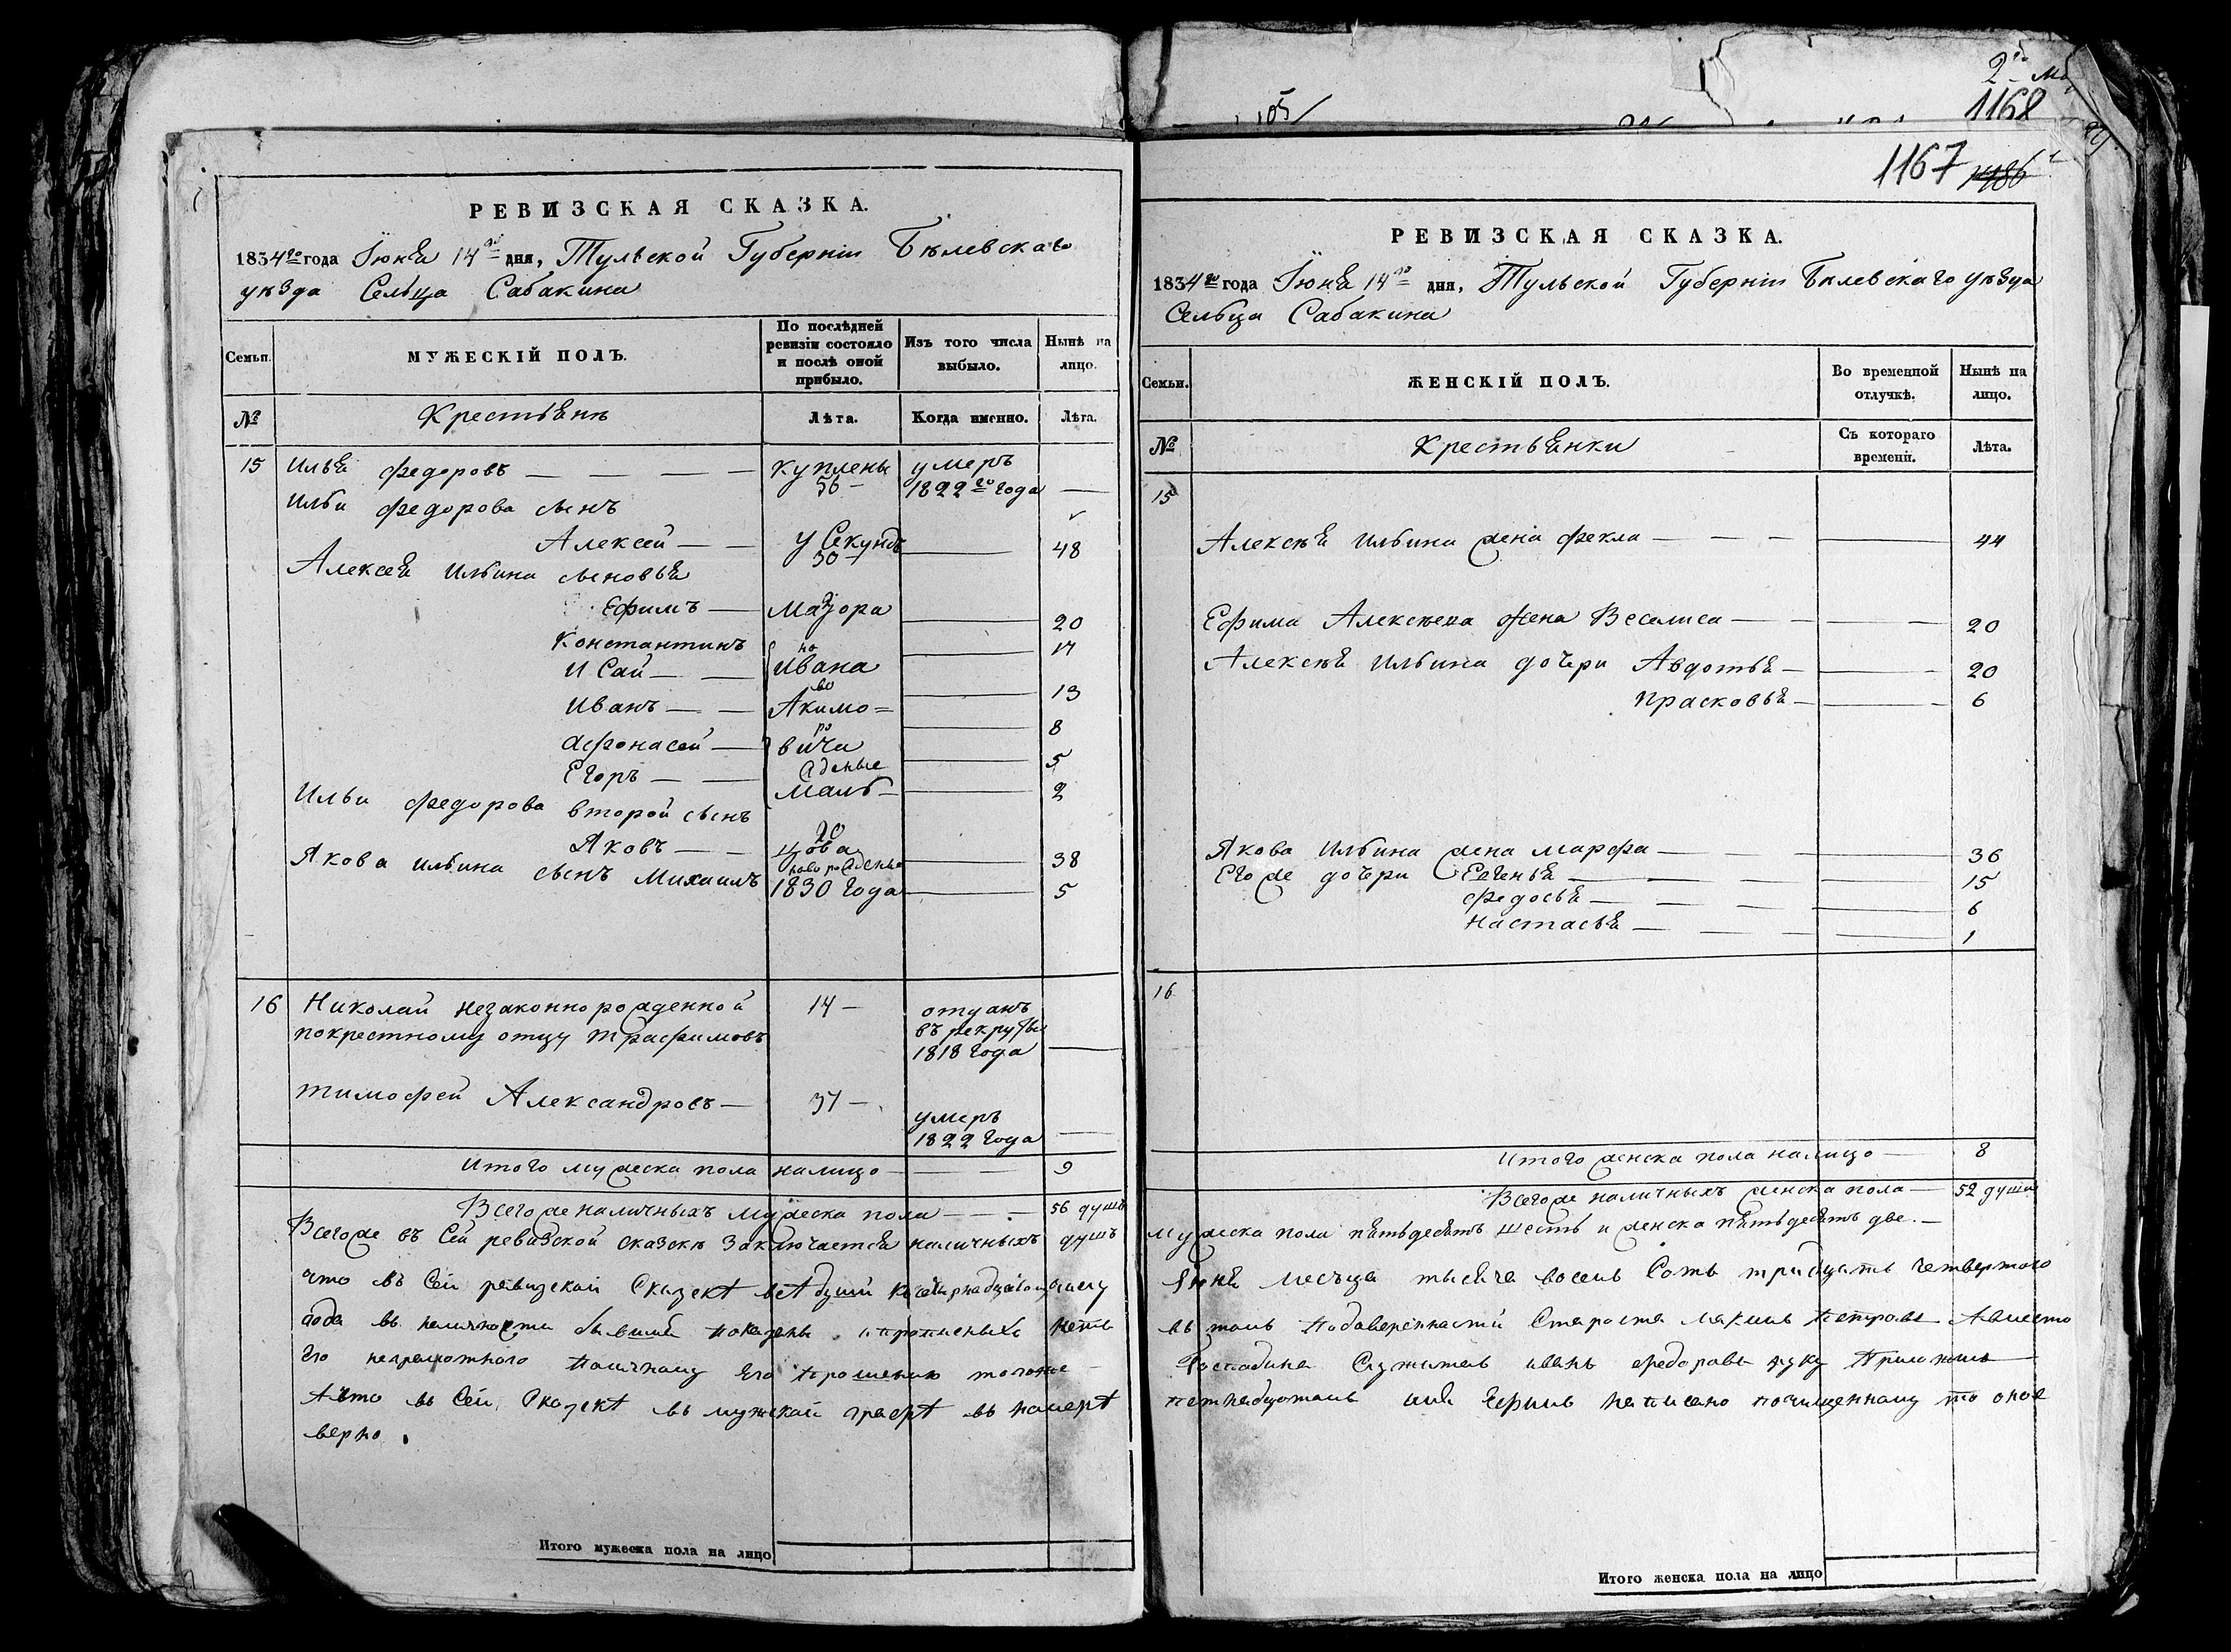 105
2го
1168
1167 1186
РЕВИЗСКАЯ СКАЗКА.
1834го года Іюня 14го дня, Тульской Губерніи Бѣлевскаго
уѣзда Сельца Сабакина
Семьи.
МУЖЕСКІЙ ПОЛЪ.
По послѣдней ревизіи состояло и послѣ оной прибыло.
Изъ того числа выбыло.
Нынѣ на лицо.
№
Крестьянѣ
Лѣта.
Когда именно.
Лѣта.
15 Илья Федоровъ — куплены 56 — умеръ 1822го года —
Ильи Федорова сынъ
Алексей — у Секундъ 30 — 48
Алексея Ильина сыновья
Ефимъ — Маіора 20
Константинъ но 17
Исай — Ивана во 13
Иванъ — Акимо= ро 8
Афонасей — вича ждены 5
Егоръ — Маль— 2
Ильи Федорова второй сынъ
Яковъ — 20 цова 38
Якова Ильина сынъ Михаилъ новорожденъ 1830 года 5
16 Николай незаконнорожденной 14 — отданъ
покрестному отцу Трафимовъ въ рекруты
1818 года —
Тимофей Александровъ — 37 — умеръ
1822 года —
Итого мужеска пола налицо — 9
Всегоже наличныхъ мужеска пола — 56 душъ
Всегоже въ Сей ревизской сказкѣ заключается наличныхъ душъ
что въ Сей ревизской Сказкѣ всѣ души числу
года въ наличности бывшия показаны и прописныхъ нетъ
его неграмотнаго поличному его прошению
что въ Сей Сказкѣ въ мужской графѣ въ
верно.
Итого мужеска пола на лицо
РЕВИЗСКАЯ СКАЗКА.
1834го года Іюня 14го дня, Тульской Губерніи Бѣлевскаго уѣзда
Сельца Сабакина
Семьи.
ЖЕНСКІЙ ПОЛЪ.
Во временной отлучкѣ.
Нынѣ на лицо.
№
Крестьянки
Съ котораго времени.
Лѣта.
15
Алексѣя Ильина жена Фекла — 44
Ефима Алексѣева жена Весалиса — 20
Алексѣя Ильина дочери Авдотья — 20
Прасковья — 6
Якова Ильина жена Марфа — 36
Егоже дочери Евгенья — 15
Федосья — 6
Настасья — 1
16
Итого женска пола налицо — 8
Всегоже наличныхъ женска пола — 52 души
мужеска пола пятьдесятъ шесть и женска пятьдесятъ две. —
Июня месъца тысяча восемь Сотъ тридцать четвертого
въ томъ Староста Петровъ Авместо
Господина Служитель иванъ Федоровъ руку приложилъ
написано почищенному то оное
Итого женска пола на лицо